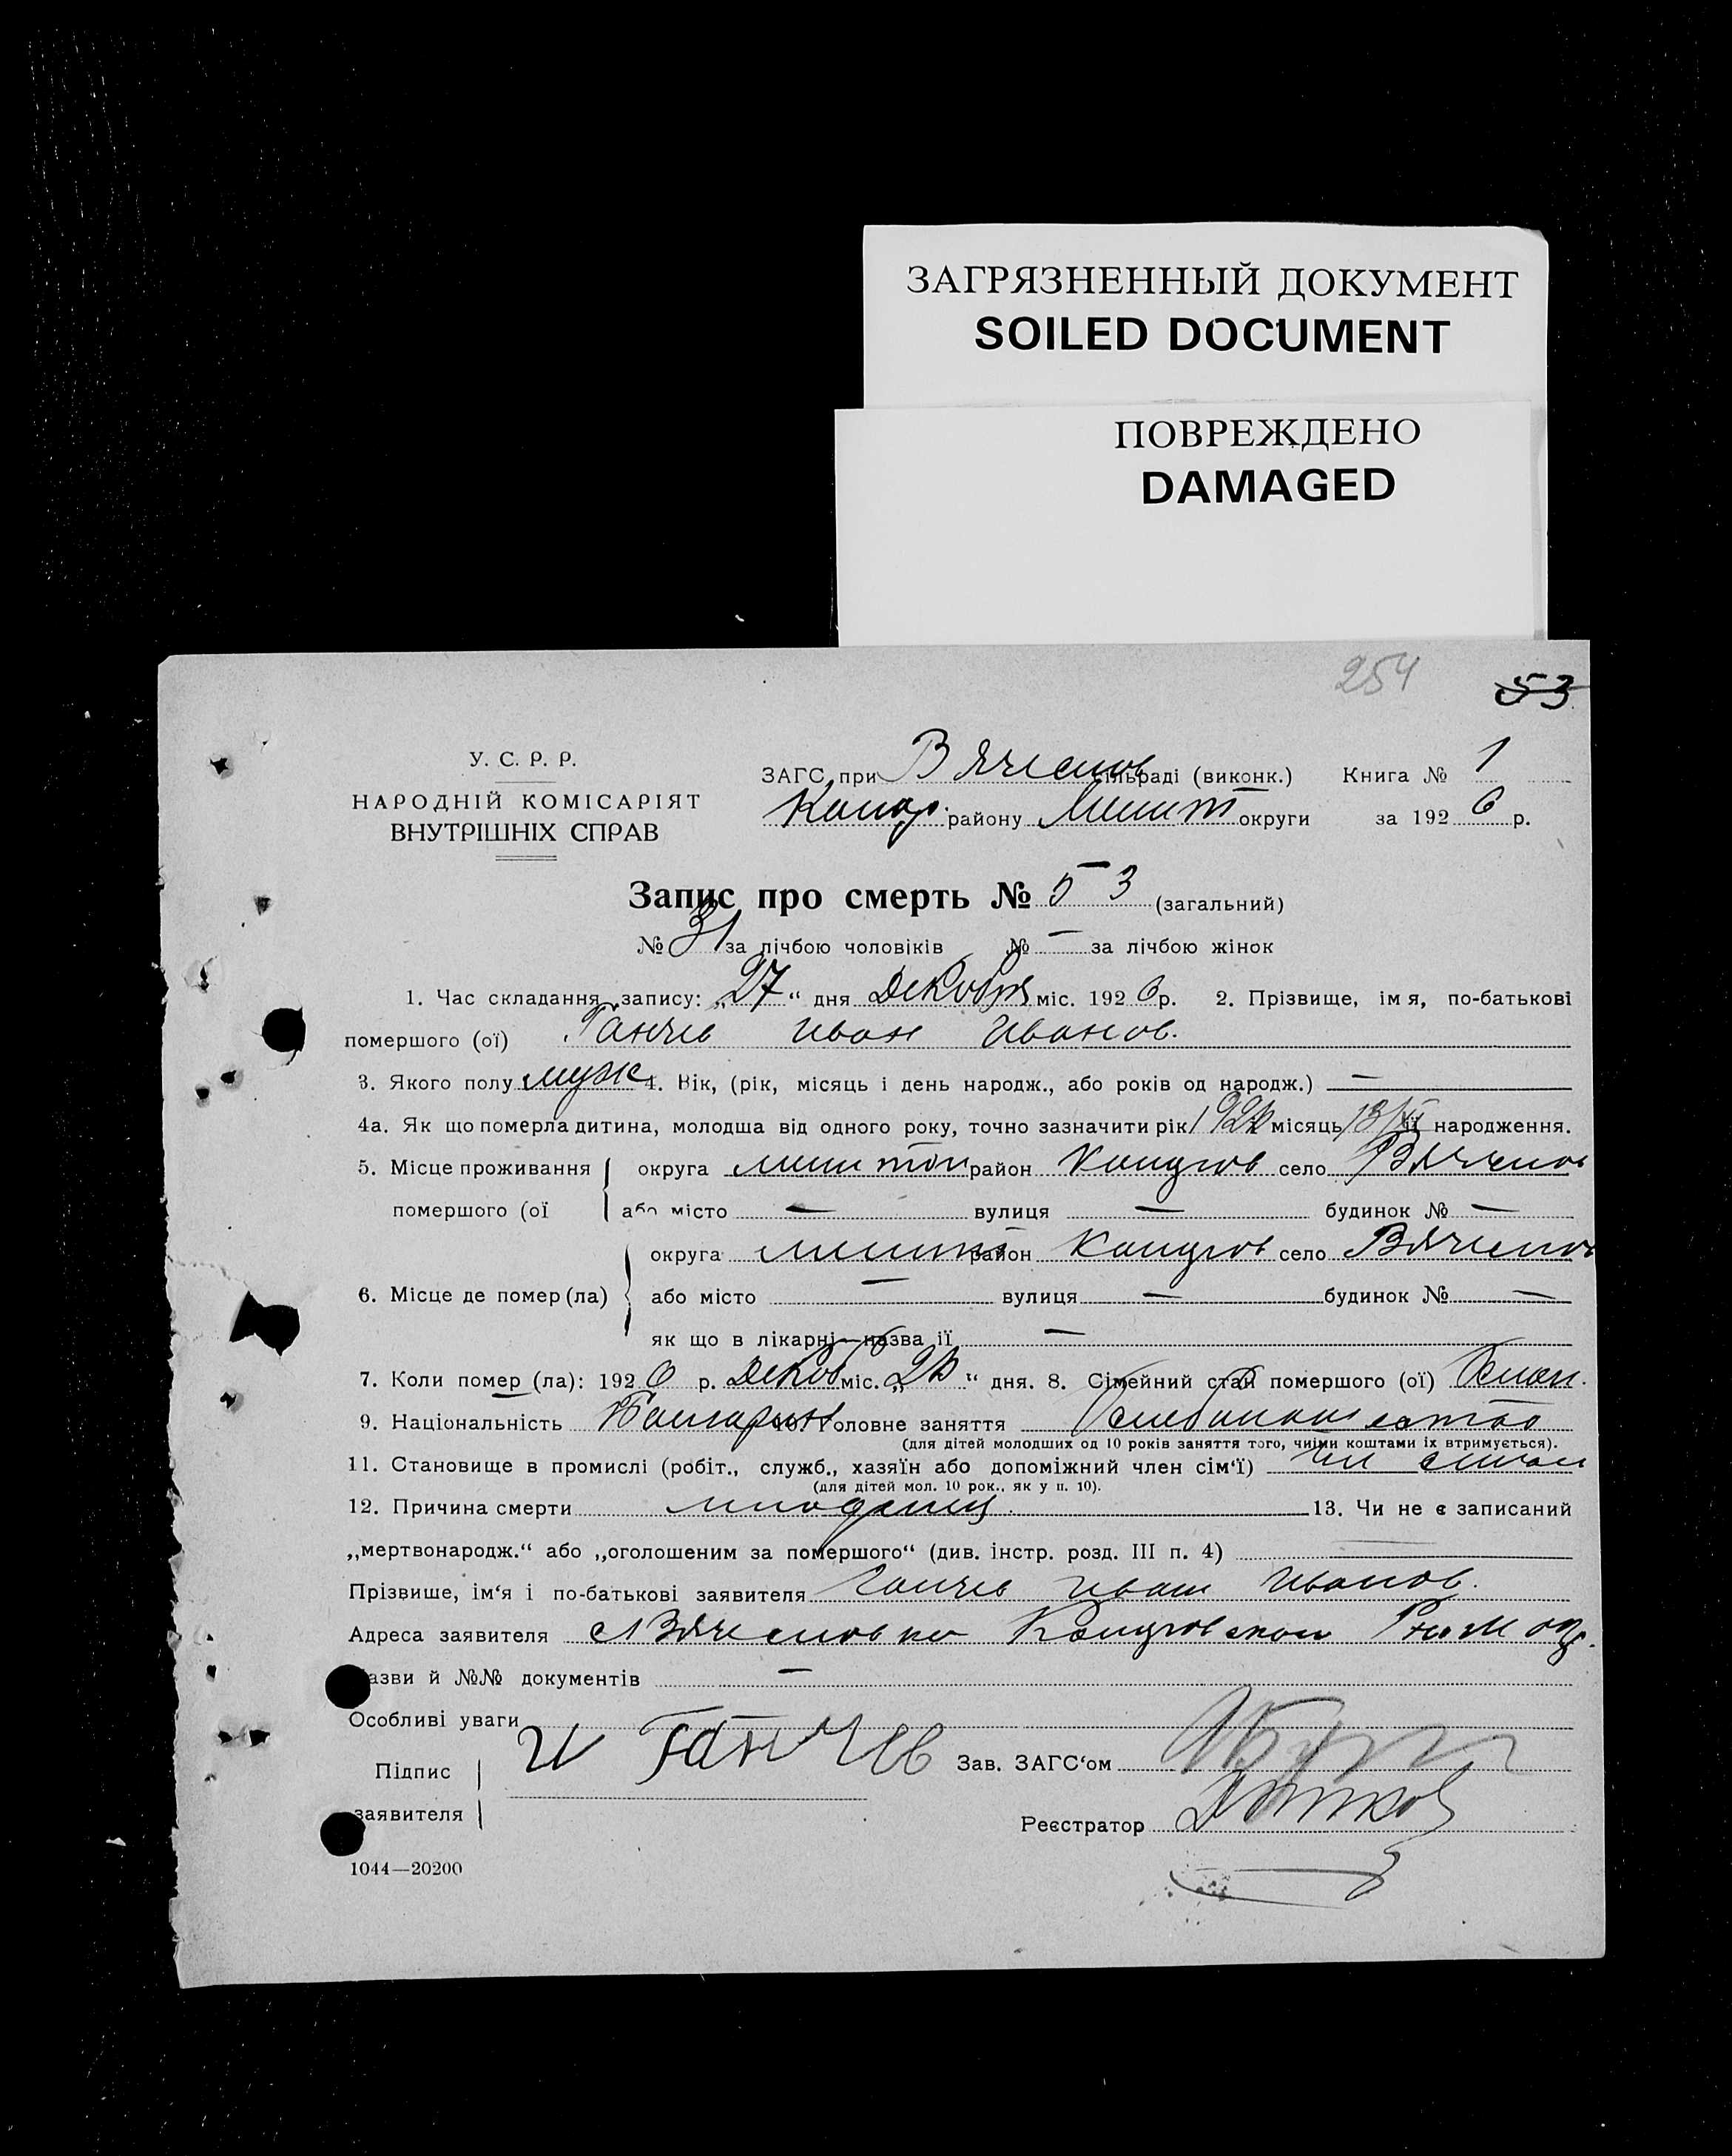 ЗАГРЯЗНЕННЫЙ ДОКУМЕНТ
SOILED DOCUMENT
ПОВРЕЖДЕНО
DAMAGED
254
53
У. С. Р. Р.
НАРОДНІЙ КОМІСАРІЯТ
ВНУТРІШНІХ СПРАВ
ЗАГС при Вячеслов сільраді (виконк.) Книга № 1
району округи за 1926 р.
Запис про смерть № 53 (загальний)
№ 31 за лічбою чоловіків № — за лічбою жінок
1. Час складання запису: „27“ дня Декабря міс. 1926 р. 2. Прізвище, імя, по-батькові
помершого (ої) Ганчев Иван Иванов.
3. Якого полу муж 4. Вік, (рік, місяць і день народж., або років од народж.) —
4а. Як що померла дитина, молодша від одного року, точно зазначити рік місяць її народження.
5. Місце проживання округа район село
помершого (ої або місто — вулиця — будинок № —
округа район село
6. Місце де помер (ла) або місто — вулиця — будинок № —
як що в лікарні—назва її —
7. Коли помер (ла): 1926 р. Декаб міс. „ “ дня. 8. Сімейний стан помершого (ої)
9. Національність Болгарин 10. Головне заняття
(для дітей молодших од 10 років заняття того, чиїми коштами їх втримується).
11. Становище в промислі (робіт., служб., хазяїн або допоміжний член сім'ї)
(для дітей мол. 10 рок., як у п. 10).
12. Причина смерти 13. Чи не є записаний
„мертвонародж.“ або „оголошеним за помершого“ (див. інстр. розд. III п. 4)
Прізвище, ім'я і по-батькові заявителя Ганчев Иван Иванов.
Адреса заявителя
азви й №№ документів —
Особливі уваги
Підпис И Ганчев Зав. ЗАГС'ом
заявителя
Реєстратор
1044—20200